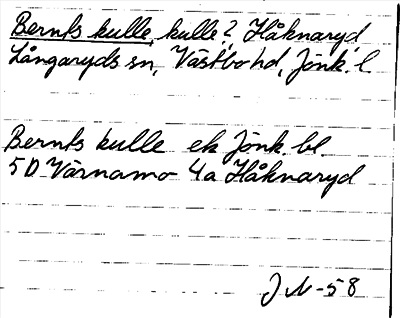 Bernts kulle, kulle? Håknaryd
Långaryds sn, Västbo hd, Jönk. l.
Bernts kulle ek Jönk. bl.
5D Värnamo 4a Håknaryd
JN-58